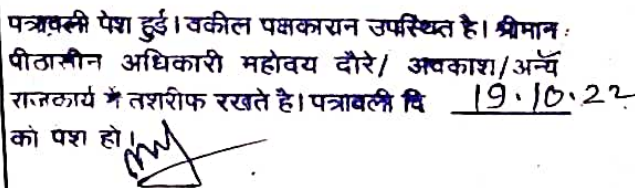 पत्रावली पेश हुई। वकील पक्षकारान उपस्थित है। श्रीमान :
पीठासीन अधिकारी महोदय दौरे/ अवकाश/अन्य
राजकार्य में तशरीफ रखते है। पत्रावली दि 19.10.22
को पेश हो।